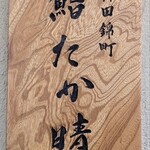 田錦町
鮨たか晴